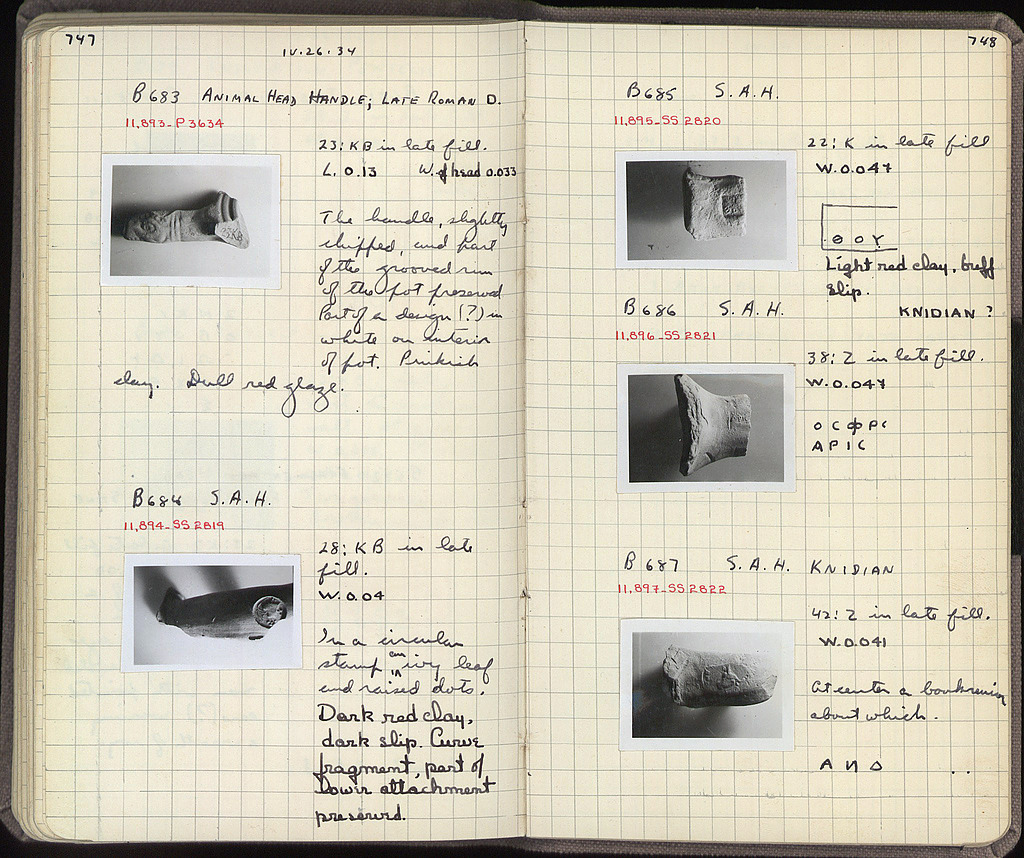 747
IV.26.34
B683 ANIMAL HEAD HANDLE; LATE ROMAN D.
11,893-P3634
23; KB in late fill.
L. 0.13 W. of head 0.033
The handle, slightly
chipped, and part
of the grooved rim
of the pot preserved
Part of a design (?) in
white on interior
of pot. Pinkish
clay. Dull red glaze.
B684 S.A.H.
11,894-SS 2819
28; KB in late
fill.
W. 0.04
In a circular
stamp an ivy leaf
and raised dots.
Dark red clay,
dark slip. Curve
fragment, part of
lower attachment
preserved.
748
B685 S.A.H.
11,895-SS 2820
22; K in late fill
W. 0.047
Θ Ο Υ
Light red clay, buff
slip.
B686 S.A.H. KNIDIAN ?
11,896-SS 2821
38; Z in late fill.
W. 0.047
Ο C Φ Ρ C
Α Ρ Ι C
B687 S.A.H. KNIDIAN
11,897-SS 2822
42; Z in late fill.
W. 0.041
At center a
about which.
Α И Δ ..